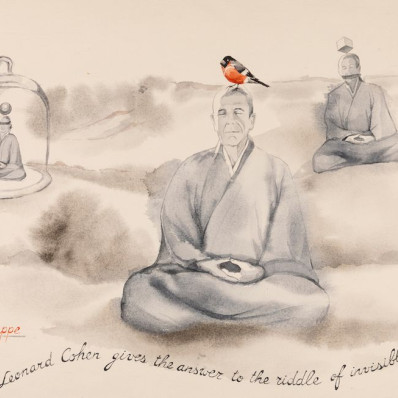 ppe
Leonard Cohen gives the answer to the riddle of invisibl